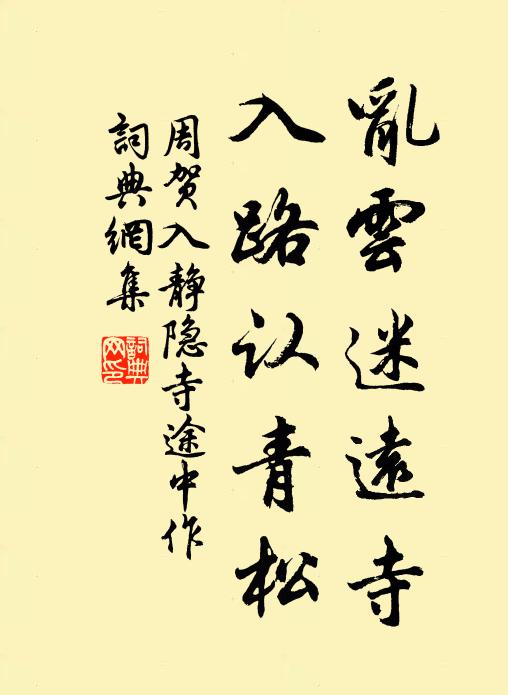 亂雲迷遠寺
入路认青松
周贺入静隐寺途中作
詞典網集
詞典网印